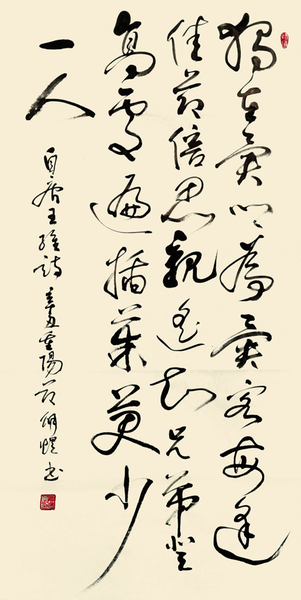 獨在異鄉為異客每逢
佳節倍思親遙知兄弟登
高處遍插茱萸少
一人
唐王維詩辛丑重陽節煜书